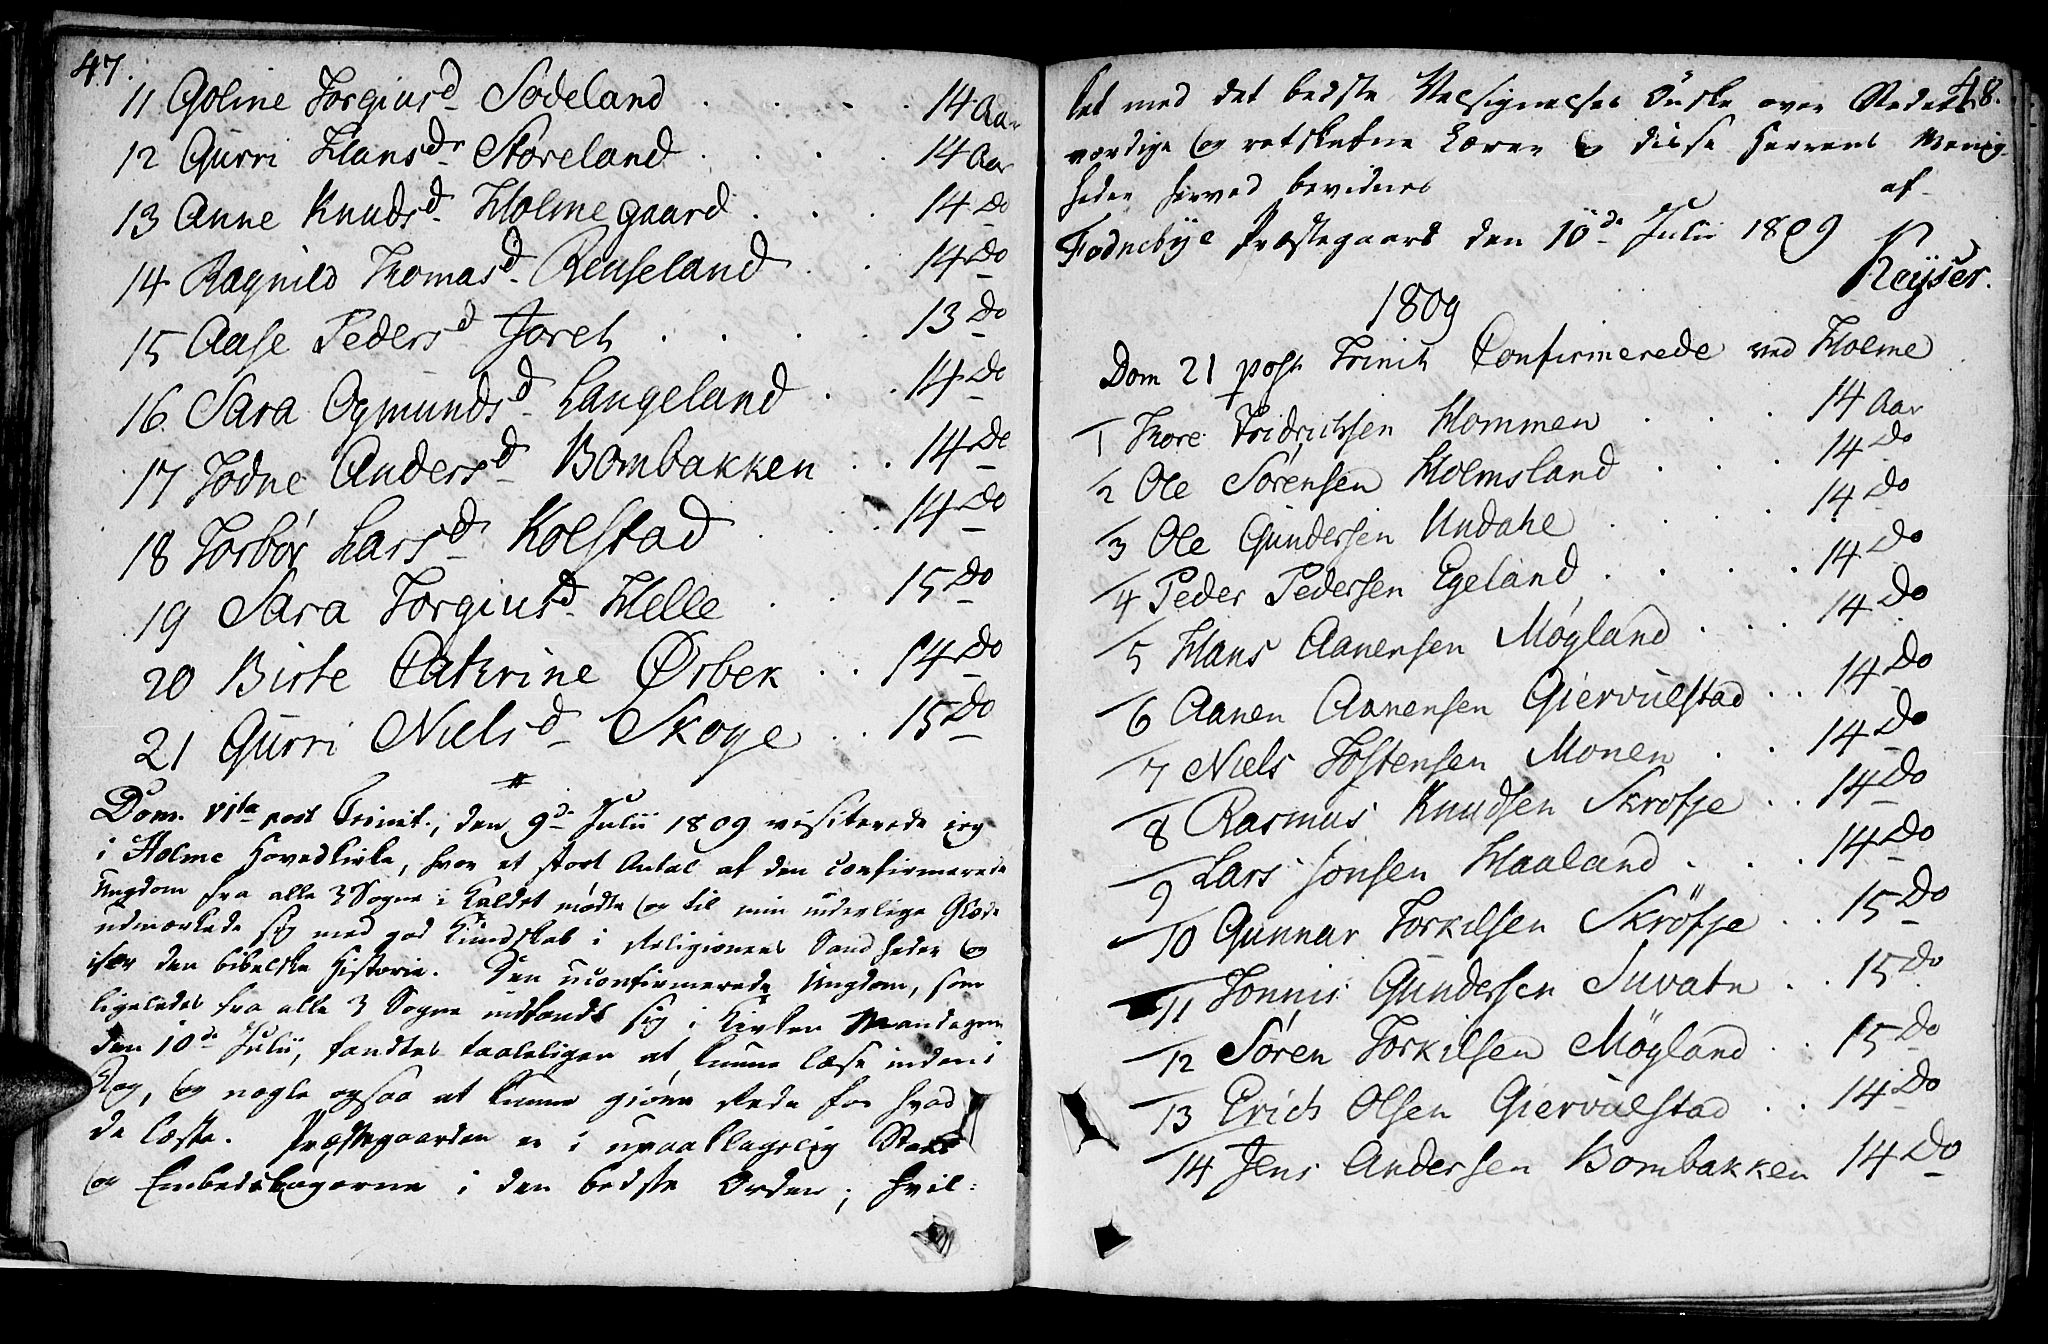 47.
11 Goline Torgiusd. Sodeland . . . . 14 Aar
12 Gurri Hansdr Støreland . . . . 14 Aar
13 Anne Knudsd. Holmegaard . . . 14 Do
14 Ragnild Thomasd. Reuseland . . 14 Do
15 Aase Pedersd Joreh . . . . 13 Do
16. Sara Ogmundsd. Langeland . . 14 Do
17 Jodne Andersd. Bombakken . . 14 Do
18 Torbør Larsd. Kolstad . . . 14 Do
19 Sara Torgiusd. Helle . . 15 Do
20 Birte Cathrine Øsbek . . 14 Do
21 Gurri Nielsd. Skoge . . 15 Do
Dom. VIta post Trinit., den 9de Julii 1809 visiterede ieg
i Holme Hovedkirke, hvor et stort Antal af den confirmerede
Ungdom fra alle 3 Sogne i Kaldet mødte og til min inderlige Glæde
udmærkede sig med god Kundskab i Religionens Sandheder og
især den bibelske Historie. Den uconfirmerede Ungdom, som
ligeledes fra alle 3 Sogne indfandt sig i Kirken Mandagen
den 10de Julii, fandtes taaleligen at kunne læse inden i
Bog, og nogle ogsaa at kunne giøre Rede for hvad
de læste. Præstegaarden er i upaaklagelig Stand
og Embedsbøgerne i den bedste Orden; hvil-
48.
ket med det bedste Velsignelses Ønske over Stedets
værdige og retskafne Lærer og disse Herrens Menig-
heder herved bevidnes af
Fodnebye Præstegaard den 10de Julii 1809
Keyser.
1809
Dom 21 post Trinit Confirmerede ved Holme
1 Thore Fridrichsen Hommen . . . 14 Aar
2 Ole Sørensen Holmsland . . . 14 Do
3 Ole Gundersen Undahl . . . . 14 Do
4 Peder Pedersen Egeland . . . . 14 Do
5 Hans Aanensen Møgland . . . 14 Do
6 Aanen Aanensen Giervulstad . . 14 Do
7 Niels Tostensen Monen . . 14 Do
8 Rasmus Knudsen Skrøfje . . 14 Do
9 Lars Jonsen Haaland . . . 14 Do
10 Gunnar Torkilsen Skrøfje . . 15 Do
11 Tønnis Gundersen Suvatn . . 15 Do
12 Søren Torkilsen Møgland . . 15 Do
13 Erich Olsen Giervulstad . . 14 Do
14 Jens Andersen Bombakken 14 Do